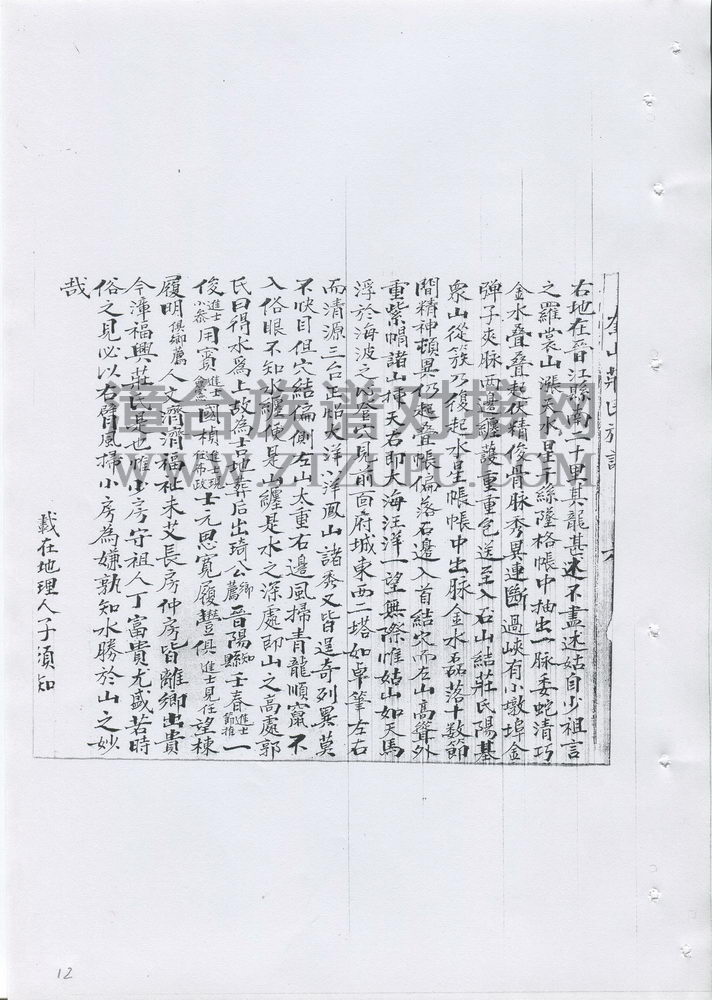 右地在晉江縣南二十里其龍甚遠不盡述姑自少祖言
之羅裳山漲天水星千絲墜格帳中抽出一脉委蛇清巧
金水叠叠起伏精後骨脉秀異連斷過峽有小墩埠金
彈子夾脉西邊纏護重重包送至入石山結莊氏陽基
衆山從簇乃復起水星帳帳中出脉金水磊落十数節
間精神頓異仍起叠帳偏落右邊入首結穴而左山高聳外
重紫帽諸山揀天右即大海汪洋一望無際惟姑山如天馬
浮於海波之外登見前面府城東西二塔如卓筆左右
而清源三台正帽大洋小洋鳳山諸秀又皆呈奇列異莫
不快目但穴結偏側左山太重右邊風掃青龍順竄不
入俗眼不知水纏便是山纏是水之深處即山之高處郭
氏曰得水爲上故為吉地葬后出琦公鄉薦晉陽知縣壬春進士節推一
俊進士小叅用賓進士僉憲國楨進士現任布政士元思寬履豐俱進士見任望棟
履明俱鄉薦人文濟濟福祉未艾長房仲房皆離鄉出貴
今漳福興莊氏是也惟少房守祖人丁富貴尤盛若時
俗之見必以右臂風掃小房為嫌孰知水勝於山之妙
哉
載在地理人子須知
莊氏族譜
六
譜合族谱对接网
WWW.ZTZUPU.COM
12